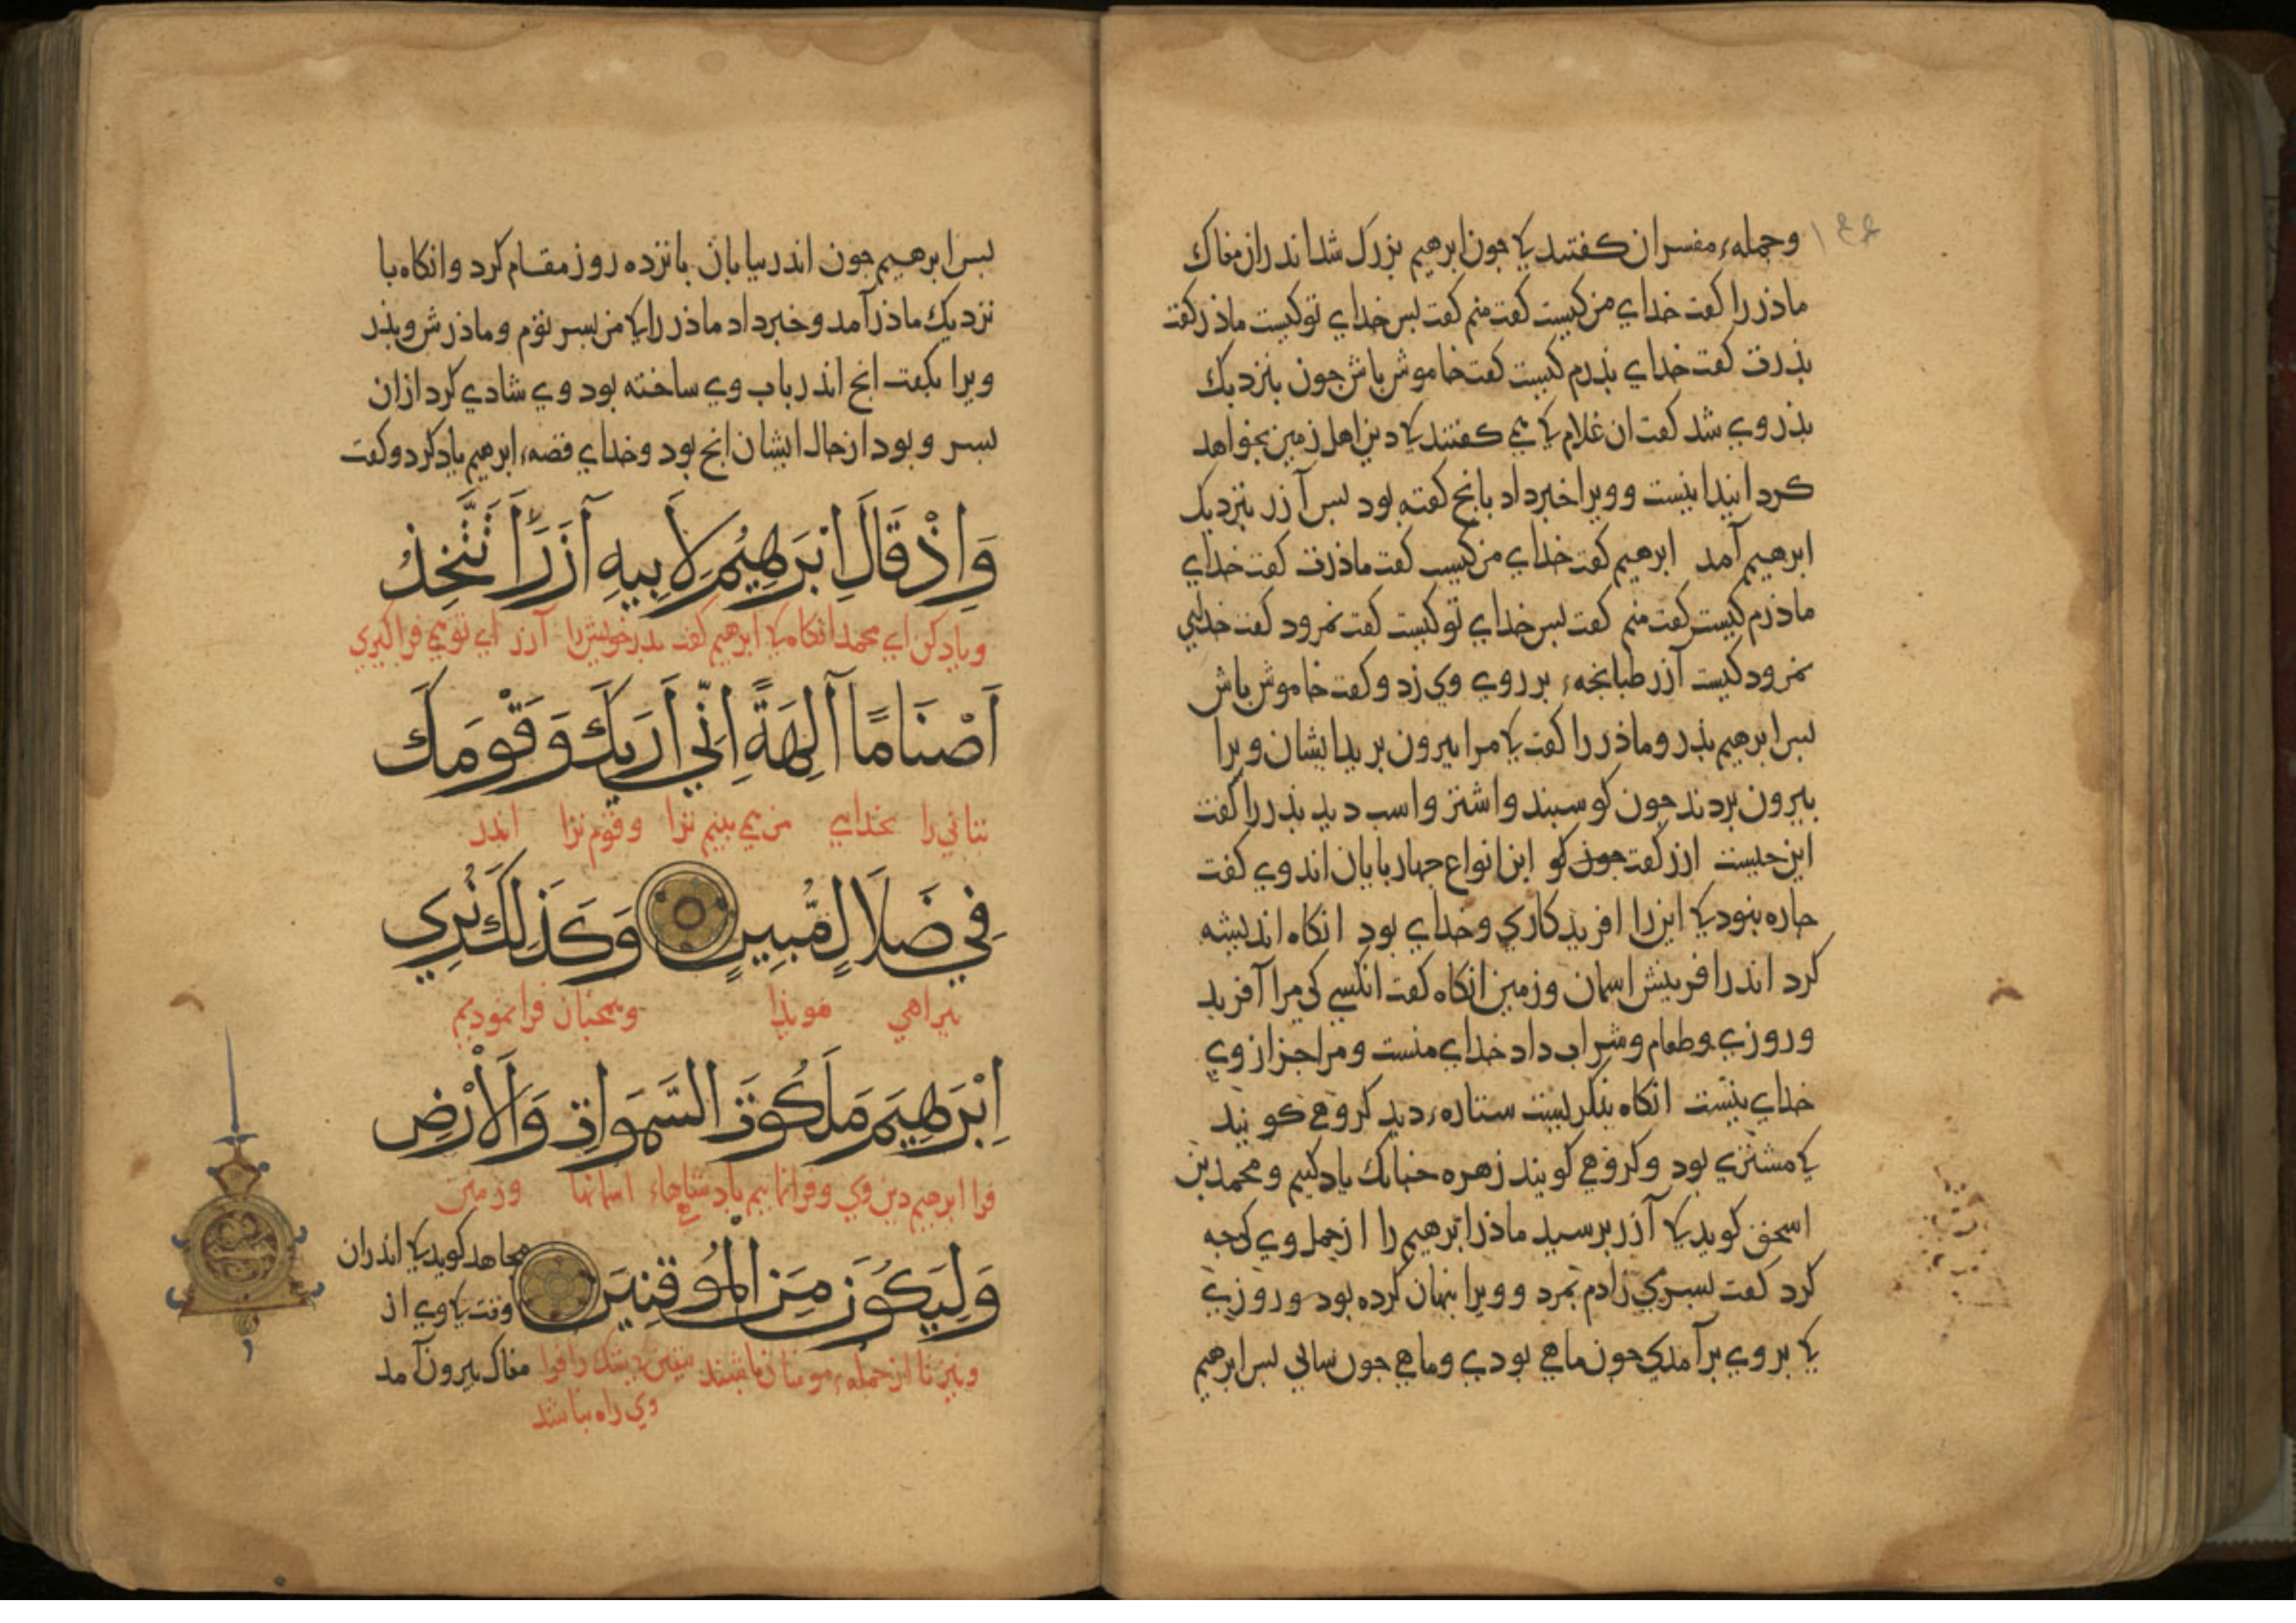 وجمله ء مفسران کفتند کا جون ابرهیم بزرک شد اندران مغاک
ماذر را کفت خدای من کیست کفت منم کفت بس خدای تو کیست ماذر کفت
بذرت کفت خدای بذرم کیست کفت خاموش باش جون بنزدیک
بذر وی شد کفت ان غلام کا می کفتند کا دین اهل زمین بخواهد
کردانید اینست وویرا خبر داد بانج کفته بود بس آزر بنزدیک
ابرهیم آمد ابرهیم کفت خدای من کیست کفت ماذرت کفت خدای
ماذرم کیست کفت منم کفت بس خدای تو کیست کفت نمرود کفت خدای
نمرود کیست آزر طبانجه ء بر روی وی زد وکفت خاموش باش
بس ابرهیم بذر وماذر را کفت کا مرا بیرون برید ایشان ویرا
بیرون بردند جون کوسبند واشتر واسب دید بذر را کفت
این جیست ازر کفت کو این انواع جهاربایان اند وی کفت
جاره بنود کا این را افریدکاری وخدای بود انکاه اندیشه
کرد اندر افرینش اسمان وزمین انکاه کفت انکسی کی مرا آفرید
وروزی وطعام وشراب داد خدای منست ومرا جز از وی
خدای نیست انکاه بنکریست ستاره ء دید کروهی کویند
کا مشتری بود وکروهی کویند زهره جنانک یاد کنیم ومحمد بن
اسحق کوید کا آزر برسید ماذر ابرهیم را از حمل وی کی جه
کرد کفت بسری زادم بمرد وویرا بنهان کرده بود وروزی
کا بر وی برآمدی جون ماهی بودی وماهی جون سالی بس ابرهیم
بس ابرهیم جون اندر بیابان بانزده روز مقام کرد وانکاه با
نزدیک ماذر آمد وخبر داد ماذر را کا من بسر توم وماذرش وبذر
ویرا بکفت انج اندر باب وی ساخته بود وی شادی کرد ازان
بسر وبود از حال ایشان انج بود وخدای قصه ء ابرهیم یاد کرد وکفت
وَاِذْ قَالَ اِبْرَهِيْمُ لِاَبِيهِ آزَرَ اَتَتَّخِذُ
ویاد کن ای محمد انکاه کا ابرهیم کفت بدر خویش را آزر ای تو می فرا کیری
اَصْنَامًا آلِهَةً اِنِّي اَرَيكَ وَقَوْمَكَ
بتانی را بخدای من می بینم ترا وقوم ترا اندر
فِي ضَلَالٍ مُّبِينٍ وَكَذَلِكَ نُرِي
بیراهی هویذا وهمجنان فرا نمودیم
اِبْرَهِيمَ مَلَكُوتَ السَّمَوَاتِ وَالْاَرْضِ
فرا ابرهیم دین وی وفرا نماییم بادشاهی هاء اسمانها وزمین
وَلِيَكُونَ مِنَ الْمُوقِنِينَ مجاهد کوید کا اندران
وقت کا وی از
وبیرتا از جمله ء مومنان باشند یقین کا شک را فرا مغاک بیرون آمد
وی راه نباشد